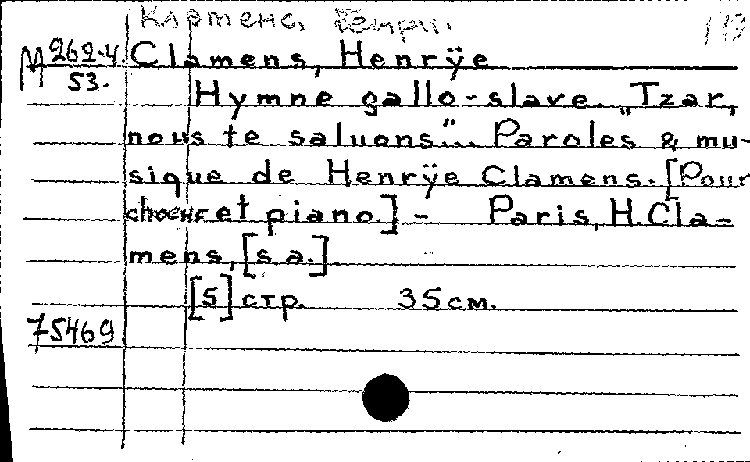 Клэменс, Генри.
М 262-4 Clamens, Henrÿe
53.
Hymne gallo-slave. „Tzar,
nous te saluons"... Paroles & mu-
sique de Henrÿe Clamens. [Pour
choeur et piano.] - Paris, H. Cla-
mens, [s. a.].
[5] стр. 35 см.
75469